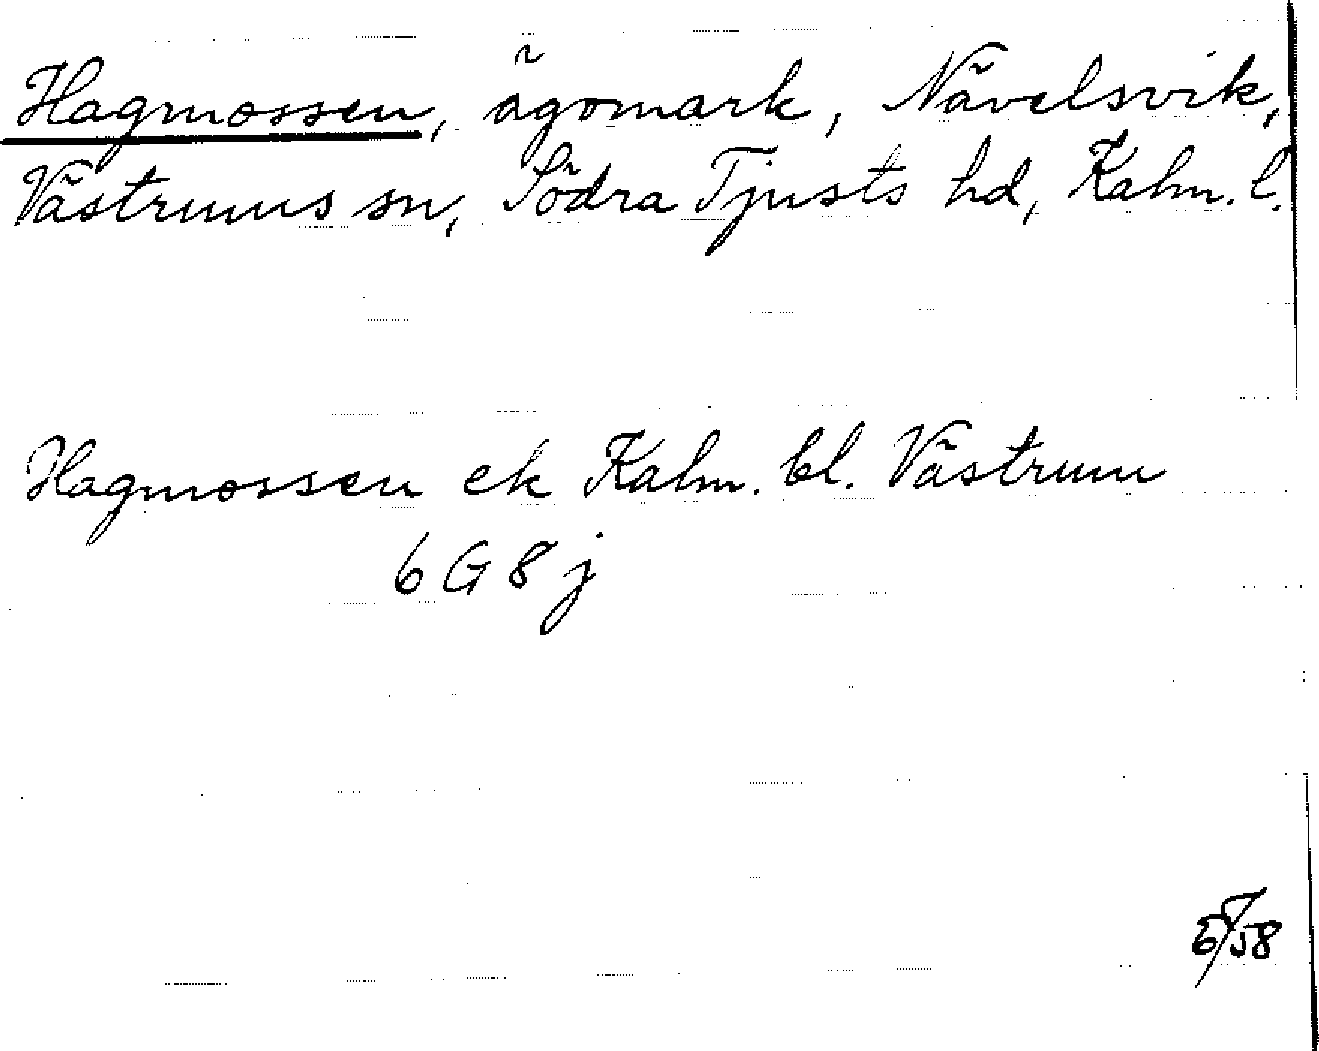 Hagmossen, ägomark, Nävelsvik,
Västrums sn, Södra Tjusts hd, Kalm. l.
Hagmossen ek Kalm. bl. Västrum
6 G 8 j